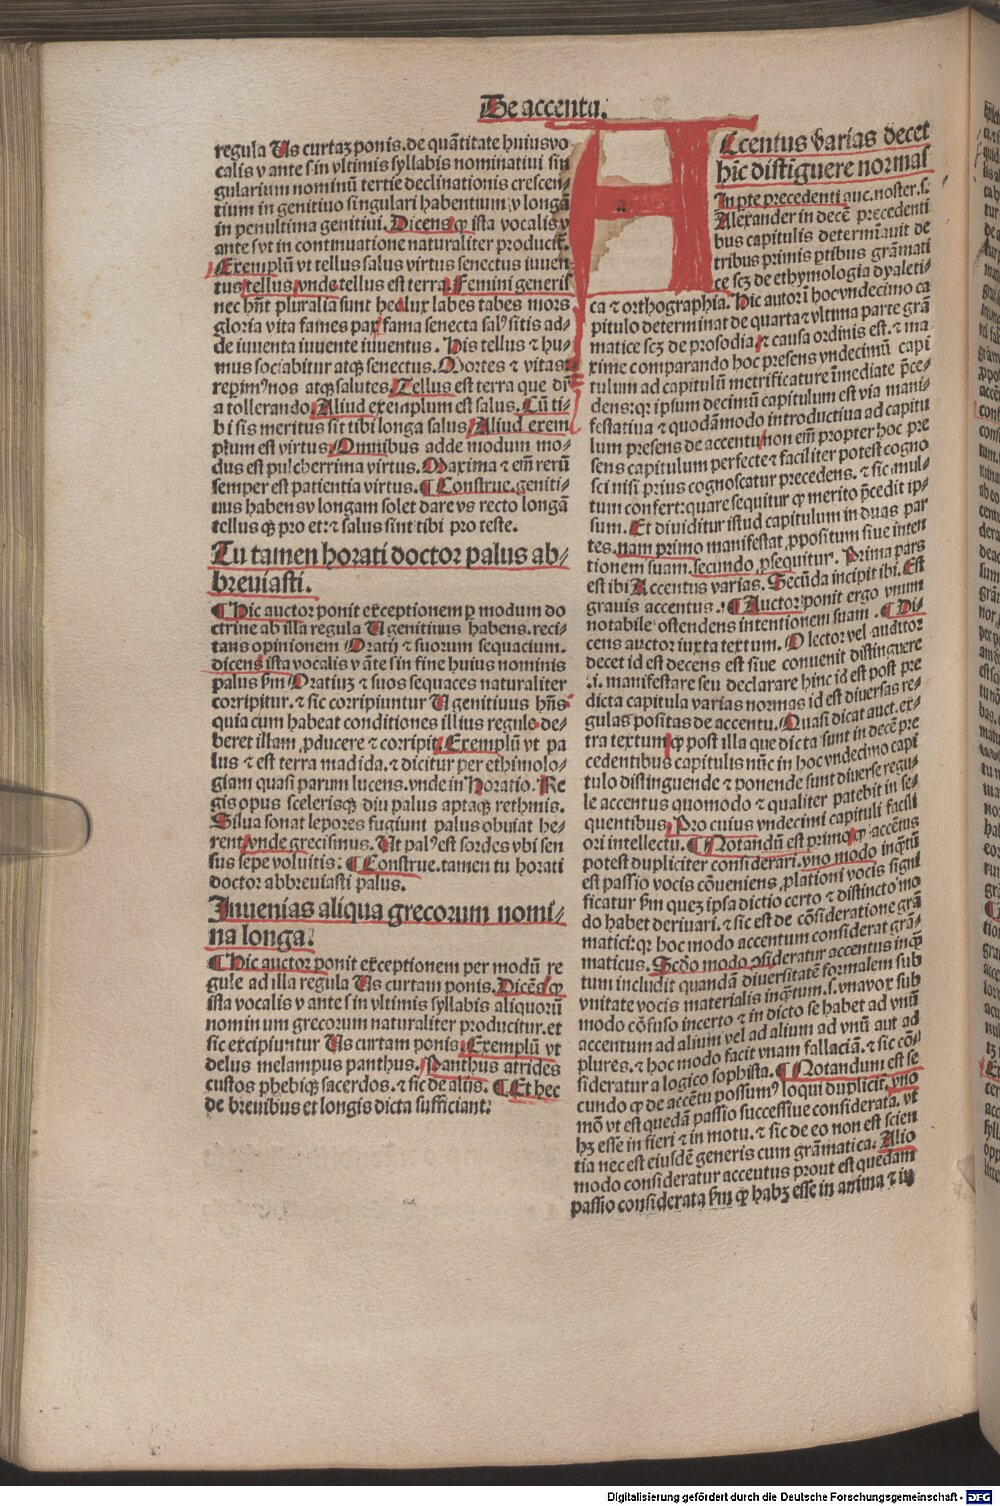 De accentu.
regula Us curtaꝫ ponis. de quãtitate huius vo
calis v ante s in vltimis syllabis nominatiui sin
gularium nominũ tertie declinationis crescen⸗
tium in genitiuo singulari habentium v longã
in penultima genitiui. Dicens ꝙ ista vocalis v
ante s vt in continuatione naturaliter producit̃.
Exemplũ vt tellus salus virtus senectus iuuen
tus tellus vnde tellus est terra. Femini generis
nec hñt pluralia sunt hec lux labes tabes mors
gloria vita fames pax fama senecta salꝰ sitis ad⸗
de iuuenta iuuente iuuentus. His tellus ⁊ hu⸗
mus sociabitur atqꝫ senectus. Mortes ⁊ vitas
reperimꝰ nos atqꝫ salutes. Tellus est terra que di
a tollerando. Aliud exemplum est salus. Cũ ti⸗
bi sis meritus sit tibi longa salus. Aliud exem
plum est virtus. Omnibus adde modum mo⸗
dus est pulcherrima virtus. Maxima ⁊ em̃ rerũ
semper est patientia virtus. ¶ Construe. geniti⸗
uus habens v longam solet dare vs recto longã
tellus qꝫ pro et: ⁊ salus sint tibi pro teste.
Tu tamen horati doctor palus ab⸗
breuiasti.
¶ Hic auctor ponit exceptionem ꝑ modum do
ctrine ab illa regula U genitiuus habens. reci⸗
tans opinionem Oratij ⁊ suorum sequacium.
dicens ista vocalis v ãte s in fine huius nominis
palus ẜm Oratiuꝫ ⁊ suos sequaces naturaliter
corripitur. ⁊ sic corripiuntur U genitiuus hñs
quia cum habeat conditiones illius regule de⸗
beret illam ꝓducere ⁊ corripit. Exemplũ vt pa
lus ⁊ est terra madida. ⁊ dicitur per ethimolo⸗
giam quasi parum lucens. vnde in Horatio. Re
gis opus sceleris qꝫ diu palus apta qꝫ rethmis.
Silua sonat lepores fugiunt palus obuiat he⸗
rent. vnde grecismus. Ut palꝰ est sordes vbi sen
sus sepe voluitis: ¶ Construe. tamen tu horati
doctor abbreuiasti palus.
Inuenias aliqua grecorum nomi⸗
na longa.
¶ Hic auctor ponit exceptionem per modũ re
gule ad illa regula Us curtam ponis. Dicẽs ꝙ
ista vocalis v ante s in vltimis syllabis aliquorũ
nominum grecorum naturaliter producitur. et
sic excipiuntur Us curtam ponis. Exemplũ vt
delus melampus panthus. Panthus atrides
custos phebiqꝫ sacerdos. ⁊ sic de alijs. ¶ Et hec
de breuibus et longis dicta sufficiant:
Accentus varias decet
hic distinguere normas
In ꝑte precedenti auc. noster .s.
Alexander in decẽ precedenti
bus capitulis determĩauit de
tribus primis ꝑtibus grãmati
ce scꝫ de ethymologia dyaleti⸗
ca ⁊ orthographia. Hic autor ĩ hoc vndecimo ca
pitulo determinat de quarta ⁊ vltima parte grã
matice scꝫ de prosodia. ⁊ causa ordinis est. ⁊ ma
xime comparando hoc presens vndecimũ capi
tulum ad capitulũ metrificature ĩmediate p̃ce⸗
dens: qꝛ ipsum decimũ capitulum est via mani⸗
festatiua ⁊ quodãmodo introductiua ad capitu
lum presens de accentu. non em̃ propter hoc pre
sens capitulum perfecte ⁊ faciliter potest cogno
sci nisi prius cognoscatur precedens. ⁊ sic mul⸗
tum confert: quare sequitur ꝙ merito p̃cedit ip⸗
sum. Et diuiditur istud capitulum in duas par
tes. nam primo manifestat ꝓpositum siue inten
tionem suam. secundo ꝓsequitur. Prima pars
est ibi Accentus varias. Secũda incipit ibi. Est
grauis accentus. ¶ Auctor ponit ergo vnum
notabile ostendens intentionem suam. ¶ Di⸗
cens auctor iuxta textum. O lector vel auditor
decet id est decens est siue conuenit distinguere
.i. manifestare seu declarare hinc id est post pre
dicta capitula varias normas id est diuersas re⸗
gulas positas de accentu. Quasi dicat auct. ex⸗
tra textum ꝙ post illa que dicta sunt in decẽ pre
cedentibus capitulis nũc in hoc vndecimo capi
tulo distinguende ⁊ ponende sunt diuerse regu⸗
le accentus quomodo ⁊ qualiter patebit in se⸗
quentibus. Pro cuius vndecimi capituli facili
ori intellectu. ¶ Notandũ est primo ꝙ accẽtus
potest dupliciter considerari. vno modo inqͣtũ
est passio vocis cõueniens ꝓlationi vocis signi
ficatur ẜm quez ipsa dictio certo ⁊ distincto mo
do habet deriuari. ⁊ sic est de cõsideratione grã
matici: qꝛ hoc modo accentum considerat grã⸗
maticus. Scďo modo ꝯsideratur accentus inqͣ
tum includit quandã diuersitatẽ formalem sub
vnitate vocis materialis inqͣtum .s. vna vox sub
modo cõfuso incerto ⁊ in dicto se habet ad vnũ
accentum ad alium vel ad alium ad vnũ aut ad
plures. ⁊ hoc modo facit vnam fallaciã. ⁊ sic cõ⸗
sideratur a logico sophista. ¶ Notandum est se
cundo ꝙ de accẽtu possumꝰ loqui duplicit̃. vno
mõ vt est quedã passio successiue considerata. vt
hꝫ esse in fieri ⁊ in motu. ⁊ sic de eo non est scien
tia nec est eiusdẽ generis cum grãmatica. Alio
modo consideratur accentus prout est quedam
passio considerata ẜm ꝙ habꝫ esse in anima ⁊ in
Digitalisierung gefördert durch die Deutsche Forschungsgemeinschaft - DFG